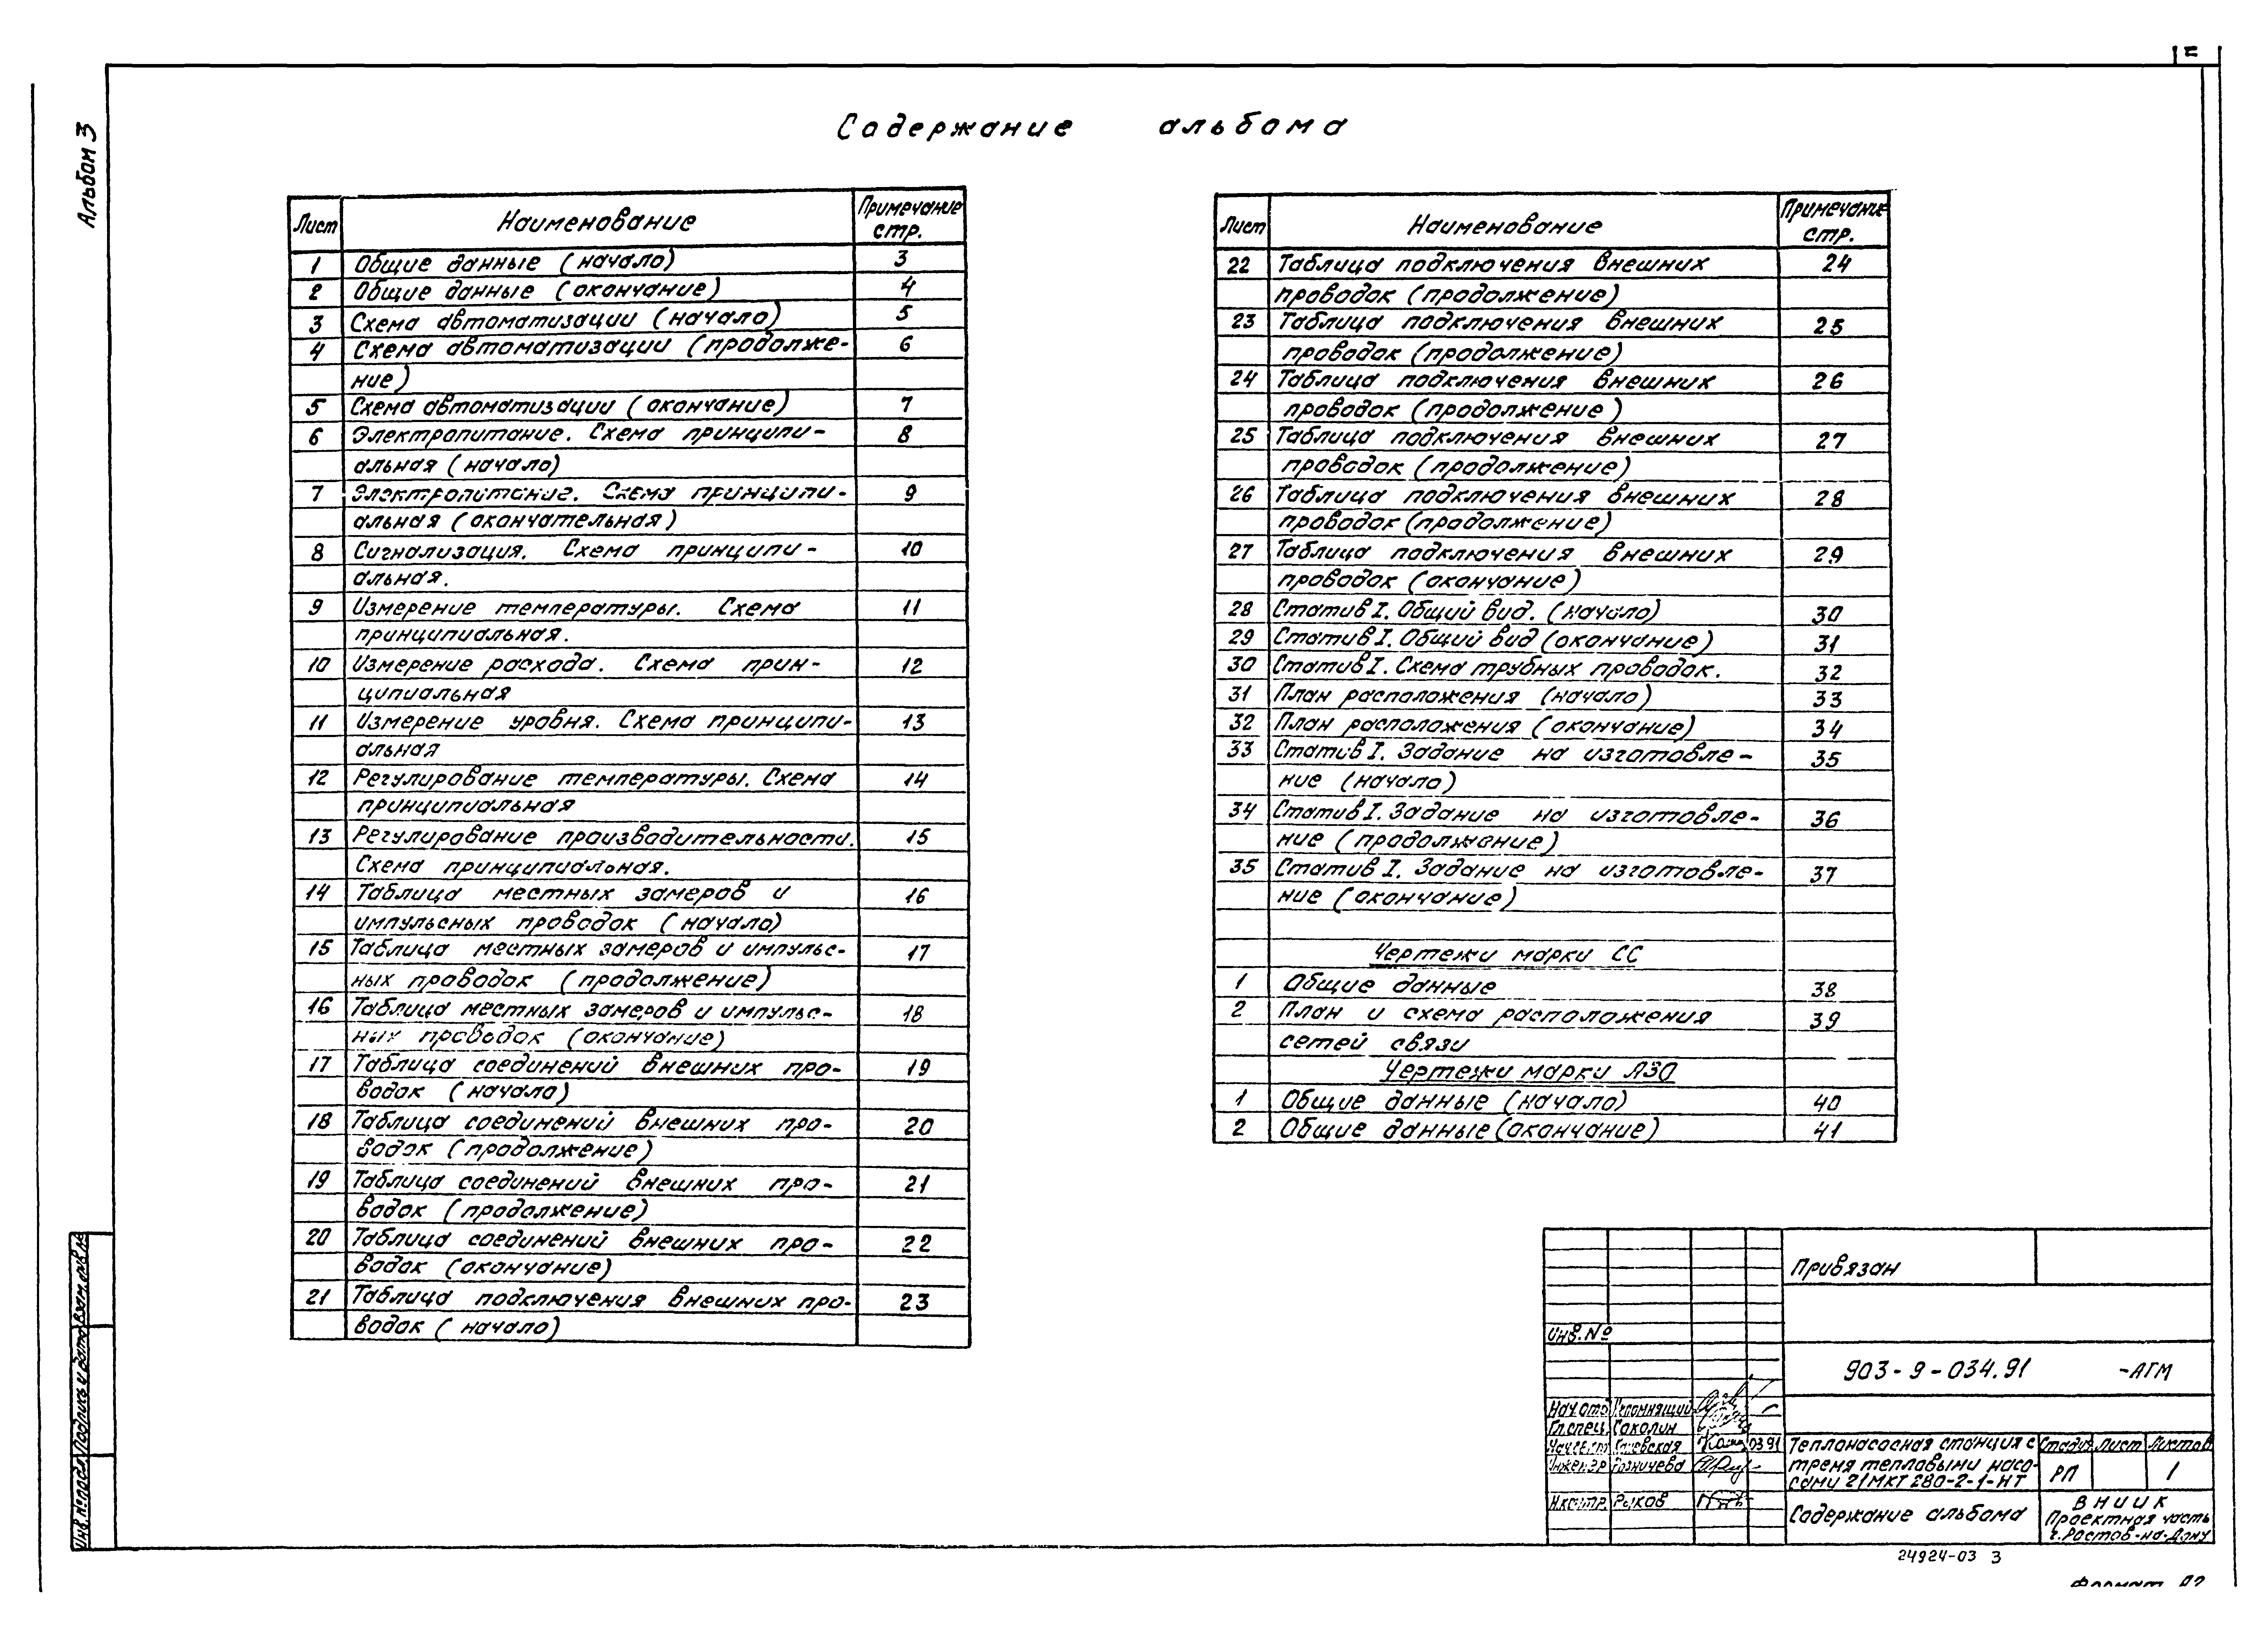 Альбом 3
Содержание альбома
Лист Наименование Примечание стр.
1 Общие данные (начало) 3
2 Общие данные (окончание) 4
3 Схема автоматизации (начало) 5
4 Схема автоматизации (продолже- 6
ние)
5 Схема автоматизации (окончание) 7
6 Электропитание. Схема принципи- 8
альная (начало)
7 Электропитание. Схема принципи- 9
альная (окончательная)
8 Сигнализация. Схема принципи- 10
альная.
9 Измерение температуры. Схема 11
принципиальная.
10 Измерение расхода. Схема прин- 12
ципиальная
11 Измерение уровня. Схема принципи- 13
альная
12 Регулирование температуры. Схема 14
принципиальная
13 Регулирование производительности. 15
Схема принципиальная.
14 Таблица местных замеров и 16
импульсных проводок (начало)
15 Таблица местных замеров и импульс- 17
ных проводок (продолжение)
16 Таблица местных замеров и импульс- 18
ных проводок (окончание)
17 Таблица соединений внешних про- 19
водок (начало)
18 Таблица соединений внешних про- 20
водок (продолжение)
19 Таблица соединений внешних про- 21
водок (продолжение)
20 Таблица соединений внешних про- 22
водок (окончание)
21 Таблица подключения внешних про- 23
водок (начало)
Лист Наименование Примечание стр.
22 Таблица подключения внешних 24
проводок (продолжение)
23 Таблица подключения внешних 25
проводок (продолжение)
24 Таблица подключения внешних 26
проводок (продолжение)
25 Таблица подключения внешних 27
проводок (продолжение)
26 Таблица подключения внешних 28
проводок (продолжение)
27 Таблица подключения внешних 29
проводок (окончание)
28 Статив I. Общий вид. (начало) 30
29 Статив I. Общий вид (окончание) 31
30 Статив I. Схема трубных проводок. 32
31 План расположения (начало) 33
32 План расположения (окончание) 34
33 Статив I. Задание на изготовле- 35
ние (начало)
34 Статив I. Задание на изготовле- 36
ние (продолжение)
35 Статив I. Задание на изготовле- 37
ние (окончание)
Чертежи марки СС
1 Общие данные 38
2 План и схема расположения 39
сетей связи
Чертежи марки АЗО
1 Общие данные (начало) 40
2 Общие данные (окончание) 41
Привязан
Инв. №
903-9-034.91 -АТМ
Нач.отд.
Гл.спец. Соколин
03.91
Н.контр. Рыков
Теплонасосная станция с
тремя тепловыми насо-
сами 21МКТ 280-2-1-НТ
Стадия Лист Листов
РП 1
Содержание альбома
ВНИИК
Проектная часть
г. Ростов-на-Дону
24924-03 3
Инв. № подл. Подпись и дата Взам. инв. №